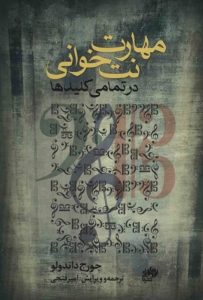 مهارت
نت خوانی
در تمامی کلیدها
جورج داندولو
ترجمه و ویرایش: امیر فتحی